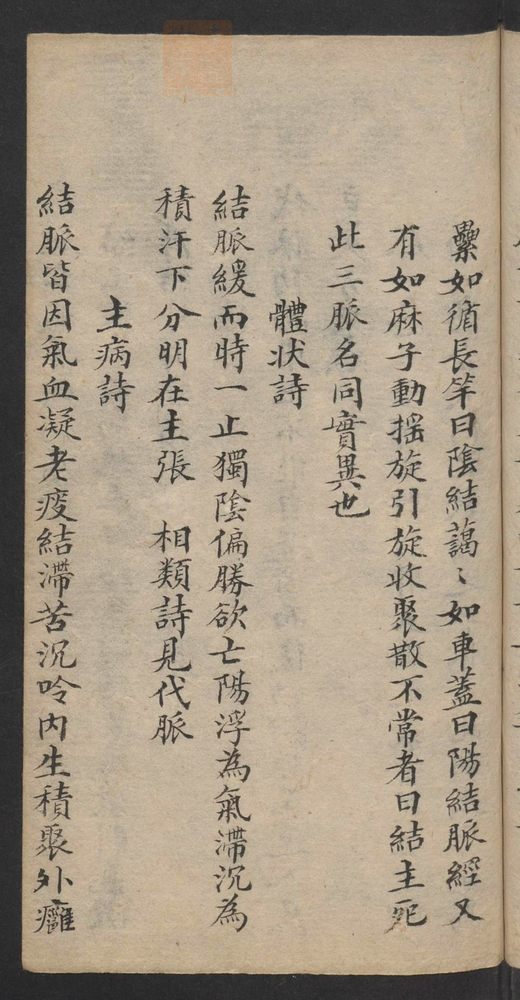 纍如循長竿曰陰結藹〻如車蓋曰陽結脈經又
有如麻子動揺旋引旋收聚散不常者曰結主死
此三脈名同實異也
體状詩
結脈緩而時一止獨陰偏勝欲亡陽浮為氣滯沉為
積汗下分明在主張　相類詩見代脈
主病詩
結脈皆因氣血凝老疫結滯苦沉吟内生積聚外癰